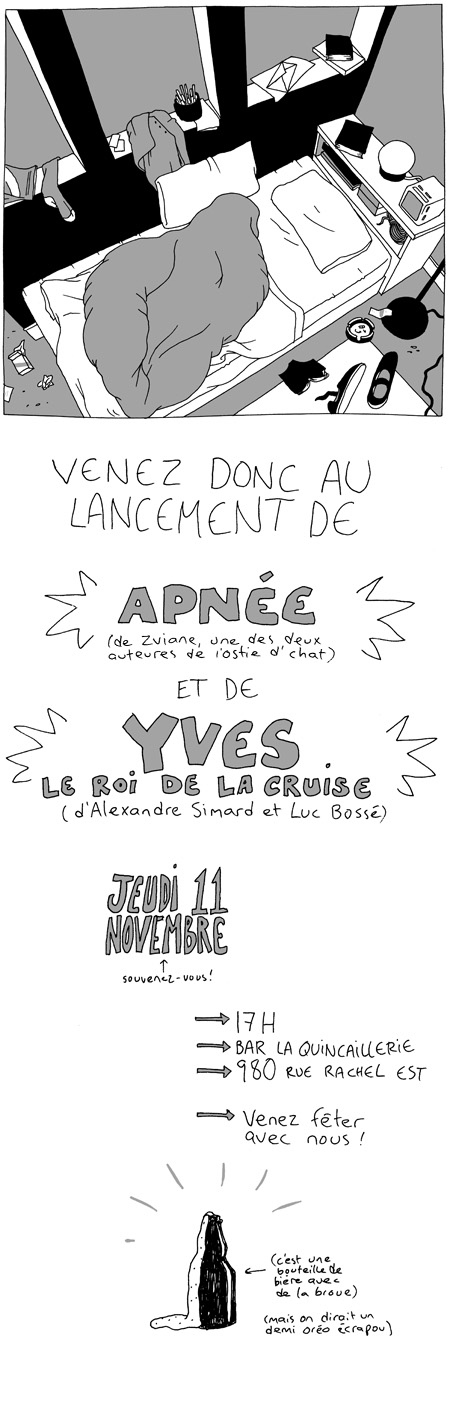 VENEZ DONC AU
LANCEMENT DE
APNÉE
(de Zviane, une des deux
auteures de l'ostie d'chat)
ET DE
YVES
LE ROI DE LA CRUISE
(d'Alexandre Simard et Luc Bossé)
JEUDI 11
NOVEMBRE
souvenez-vous!
17H
BAR LA QUINCAILLERIE
980 RUE RACHEL EST
Venez fêter
avec nous!
(c'est une
bouteille de
bière avec
de la broue)
(mais on dirait un
demi oréo écrapou)